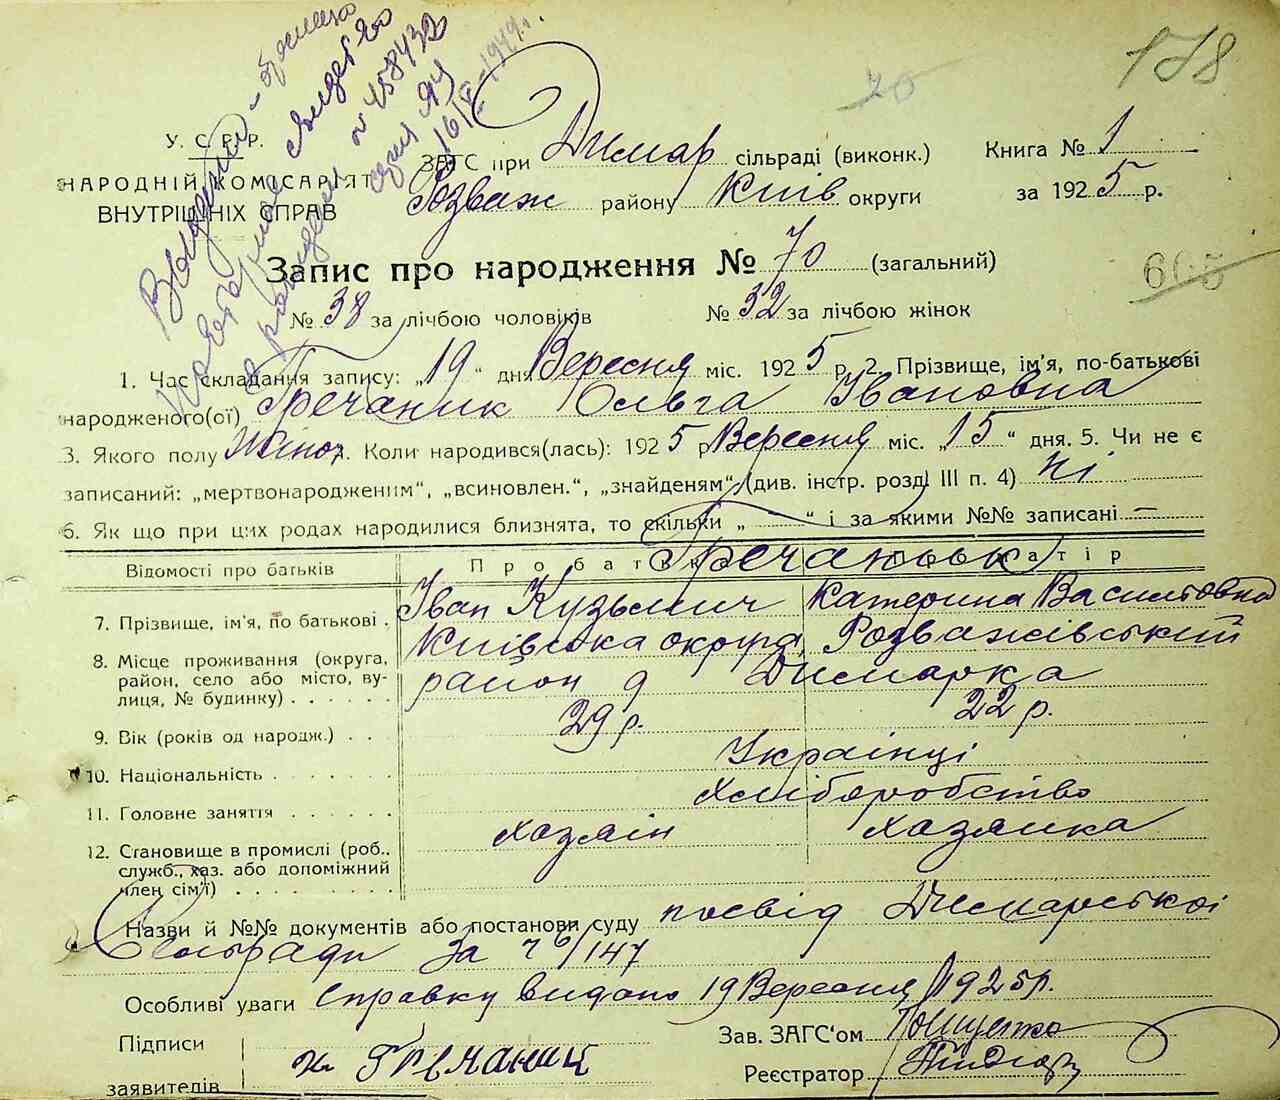 178
70
У. С. Р. Р.
НАРОДНІЙ КОМІСАРІЯТ
ВНУТРІШНІХ СПРАВ
ЗАГС при Димар сільраді (виконк.) Книга № 1
Розваж району Київ округи за 1925 р.
Запис про народження № 70 (загальний)
605
№ 38 за лічбою чоловіків № 32 за лічбою жінок
1. Час складання запису: „19“ дня Вересня міс. 1925 р. 2. Прізвище, ім'я, по-батькові
народженого(ої) Гречаник Ольга Івановна
3. Якого полу Жіноч. Коли народився(лась): 1925 р Вересня міс. „15“ дня. 5. Чи не є
записаний: „мертвонародженим“, „всиновлен.“, „знайденям“ (див. інстр. розді III п. 4) ні
6. Як що при цих родах народилися близнята, то скільки „ — “ і за якими №№ записані —
Відомості про батьків Про батька матір
7. Прізвище, ім'я, по батькові . Іван Кузьмич Катерина Василовна
8. Місце проживання (округа, Київська округа, Розважівський
район, село або місто, ву- район Димарка
лиця, № будинку) . . . . . .
9. Вік (років од народж.) . . . 29 р. 22 р.
10. Національність . . . . . . . Українці
11. Головне заняття . . . . . . Хліборобство
12. Становище в промислі (роб., хазяін хазяйка
служб., хаз. або допоміжний
член сім'ї) . . . . . . . .
Назви й №№ документів або постанови суду посвід Димарської
Сільради за 147
Особливі уваги Справку видано 19 Вересня 1925 р.
Підписи
заявителів Гречаник
Зав. ЗАГС‘ом
Реєстратор